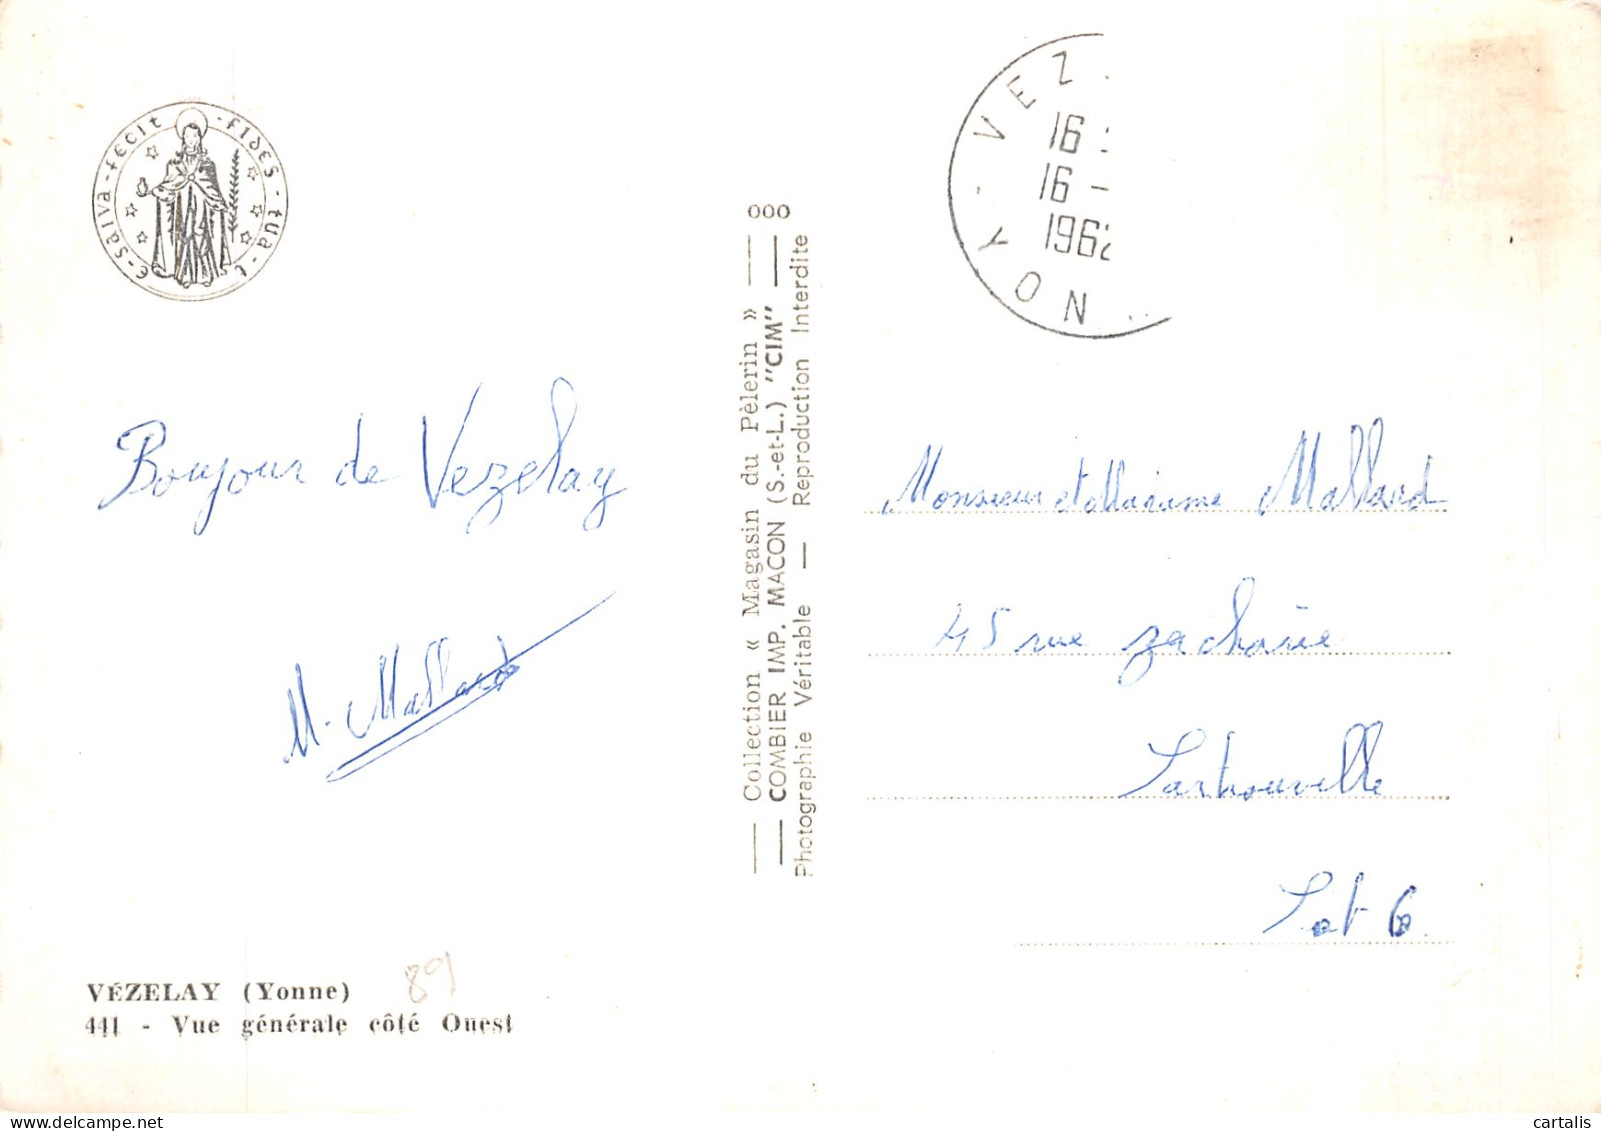 fides - tua - te - salva - fecit
Bonjour de Vezelay
M. Mallard
VÉZELAY (Yonne) 89
441 - Vue générale côté Ouest
Collection « Magasin du Pèlerin » 000
COMBIER IMP. MACON (S.-et-L.) "CIM"
Photographie Véritable — Reproduction Interdite
VEZ
16
16 -
1962
YON
Monsieur et Madame Mallard
45 rue zacharie
Sartrouville
S et 
cartalis